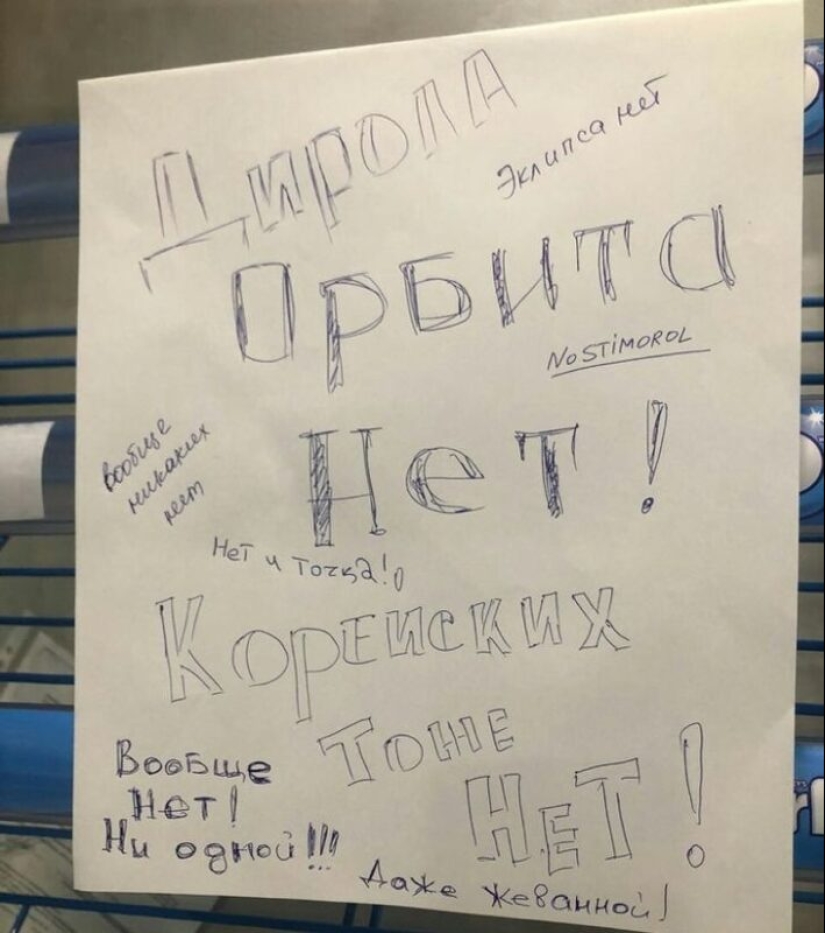 Дирола
Эклипса нет
Орбита
NO STIMOROL
Нет!
Вообще
никаких
нет
Нет и точка!
Корейских
тоне
Нет!
Вообще
Нет!
Ни одной!!!
Даже жеванной!